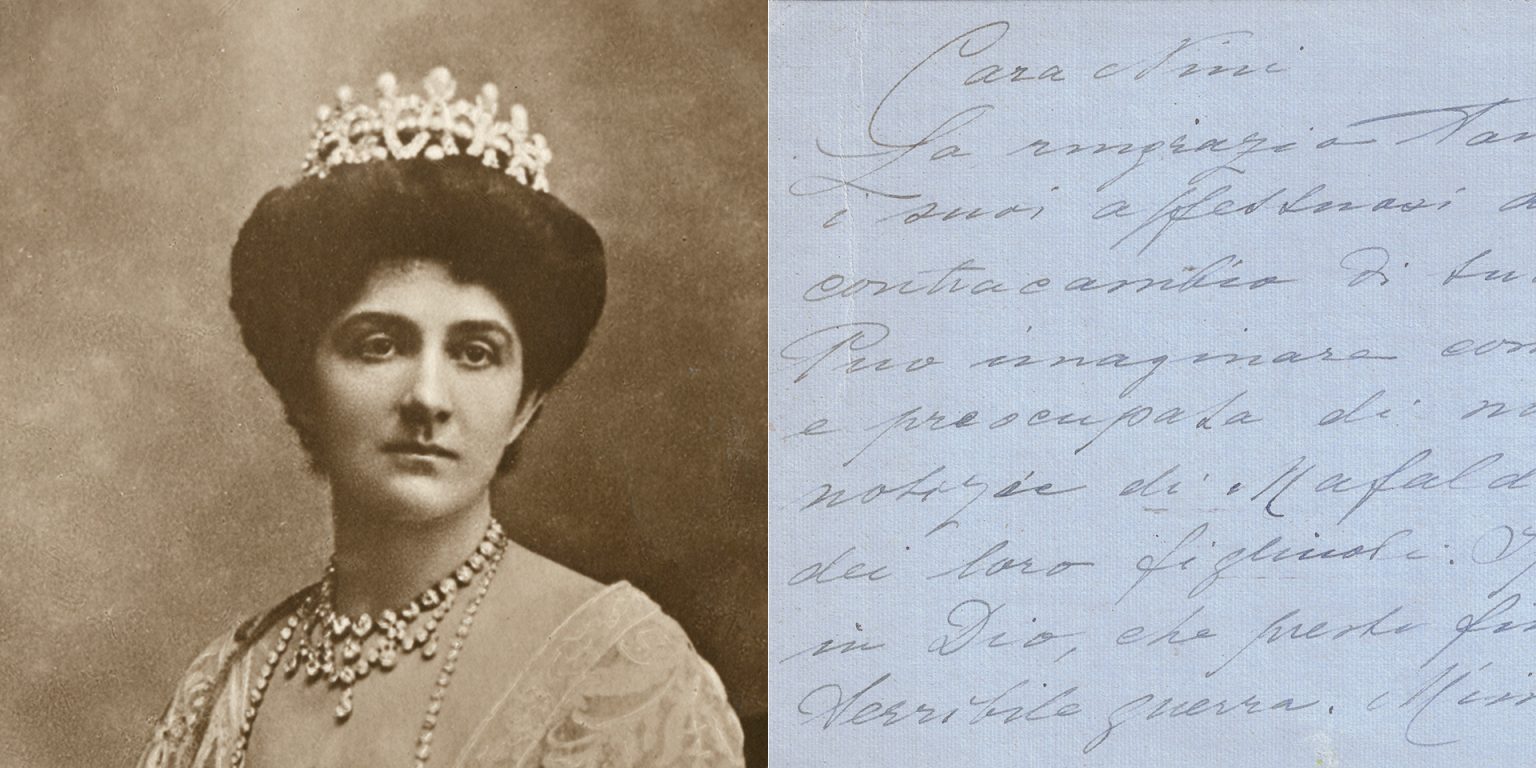 Cara Nini
La ringrazio tan
i suoi affettuosi a
contracambio di tu
Puo immaginare com
e preocupata di no
notizie di Mafald
dei loro figliuoli.
in Dio, che presto fin
terribile guerra. Mim